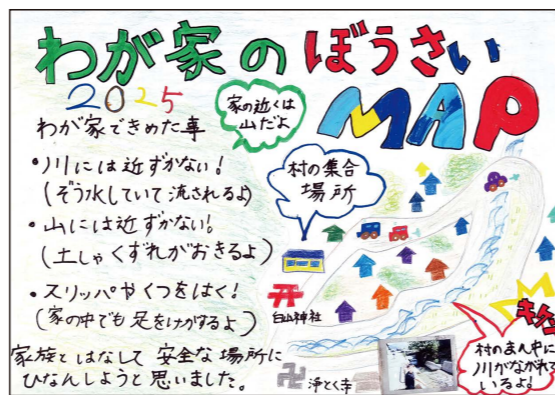 わが家のぼうさい
MAP
2025
家の近くは
山だよ
わが家できめた事
・川には近ずかない!
(ぞう水していて流されるよ)
・山には近ずかない!
(土しゃくずれがおきるよ)
・スリッパやくつをはく!
(家の中でも足をけがするよ)
家族とはなして安全な場所に
ひなんしようと思いました。
村の集合
場所
白山神社
卍 浄とく寺
キケン
村のまん中に
川がながれて
いるよ!